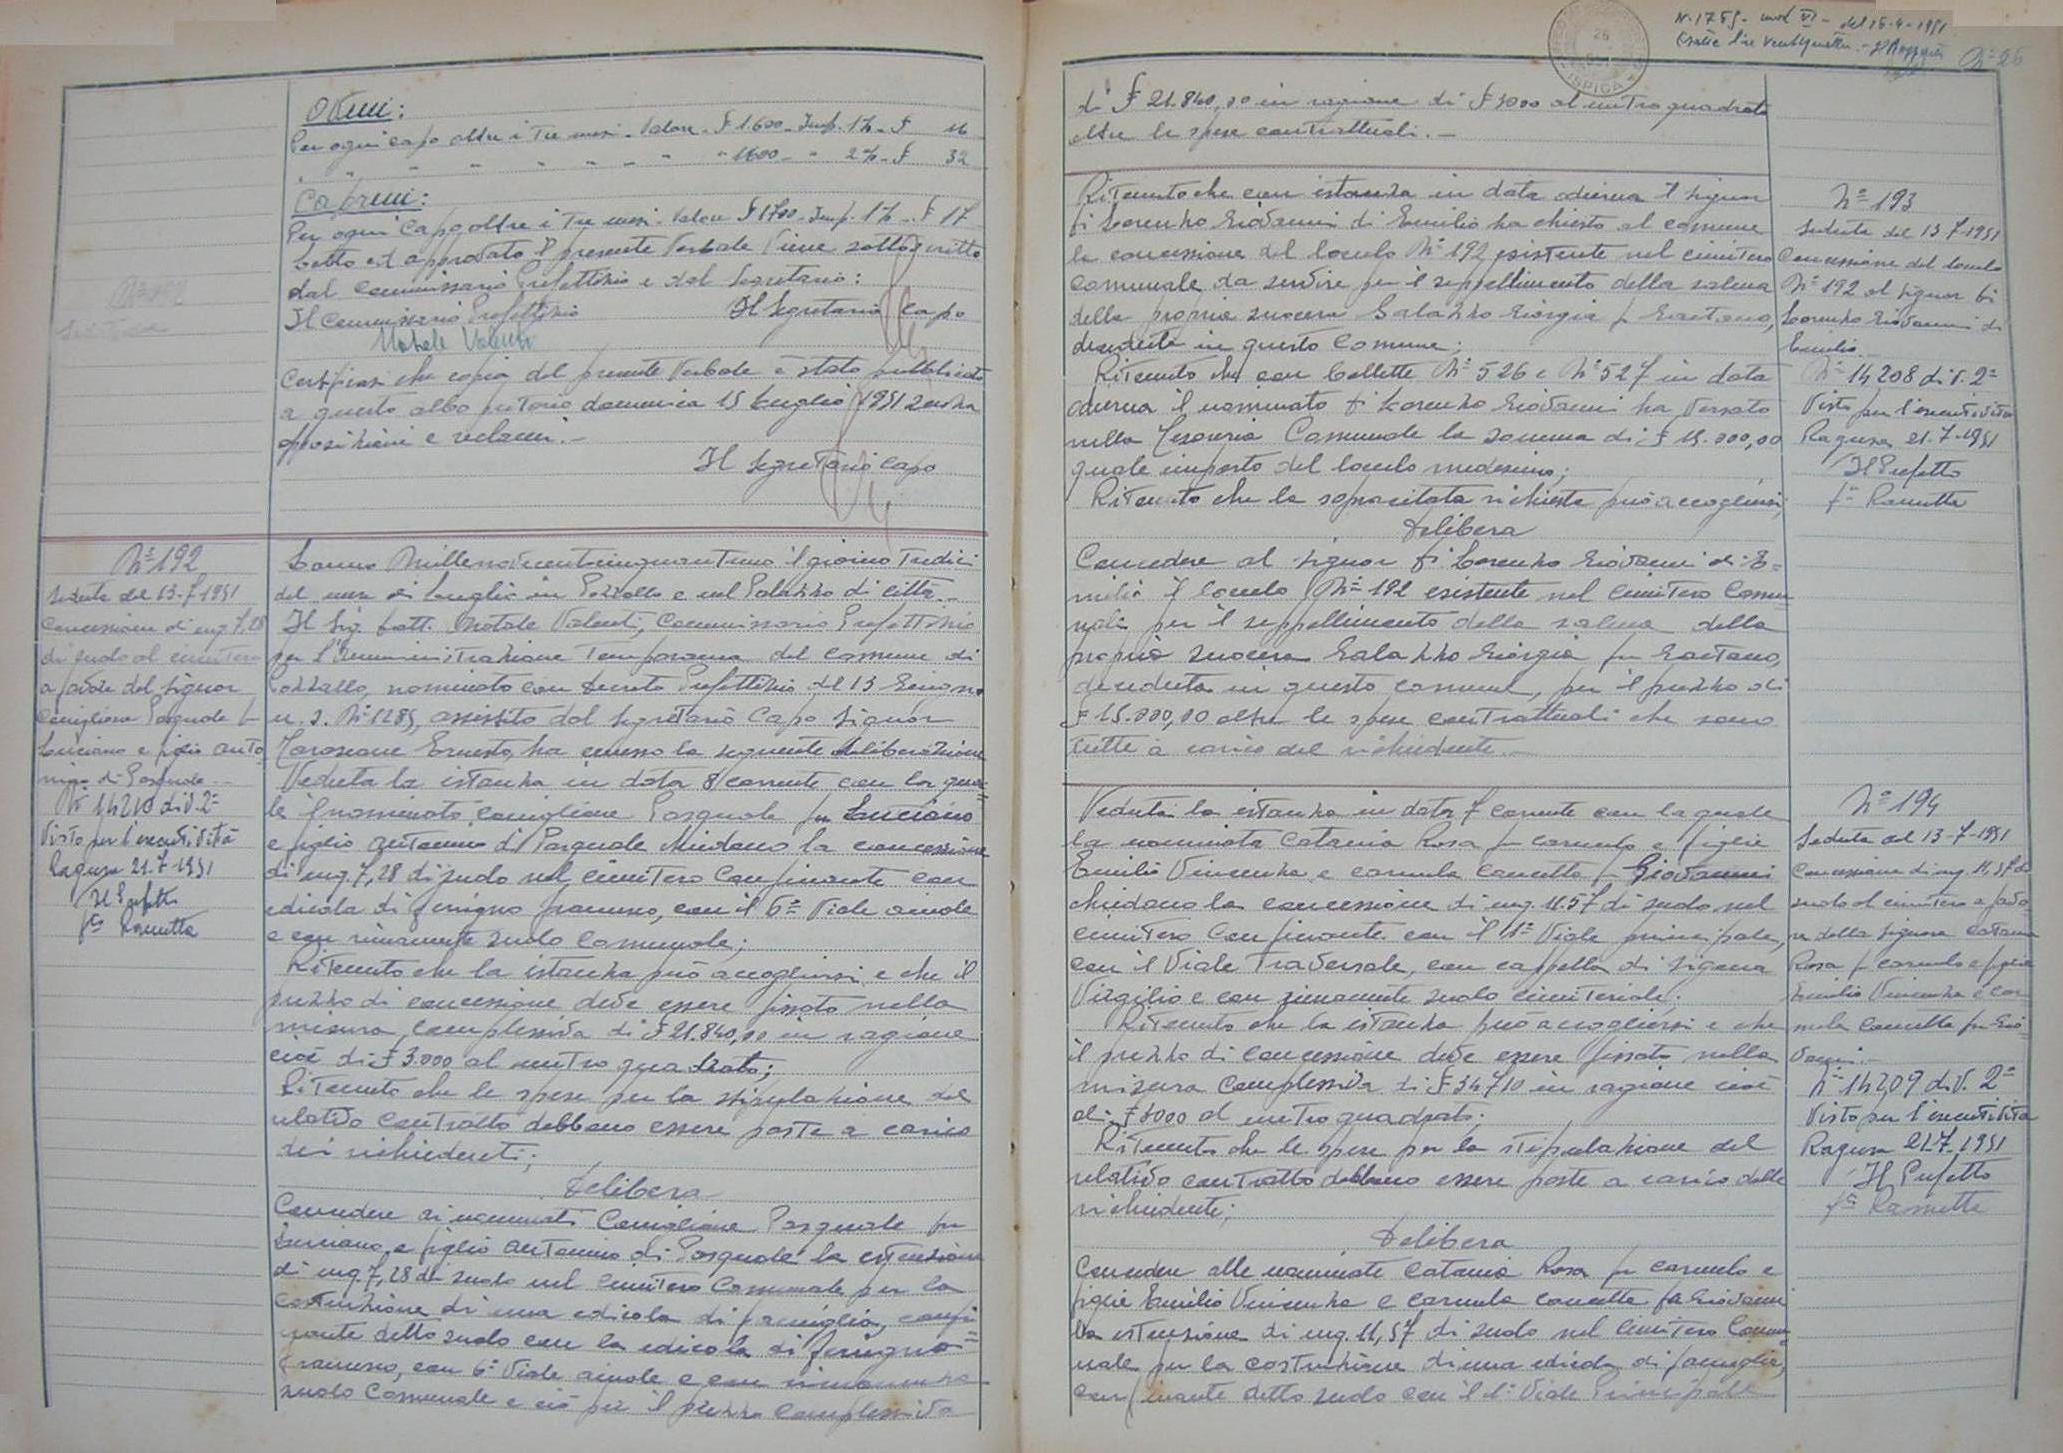 Ovini:
Per ogni capo oltre i Tre mesi - Valore - £ 1600 - Imp. 1% - £ 16
" " " " " " " 1600 - " 2% - £ 32
Caprini:
Per ogni Capo oltre i Tre mesi - Valore £ 1700 - Imp. 1% - £ 17
Letto ed approvato il presente Verbale Viene sottoscritto
dal Commissario Prefettizio e dal Segretario:
Il Commissario Prefettizio Il Segretario Capo
Natale Valenti
Certificasi che copia del presente Verbale è stato pubblicato
a questo albo pretorio domenica 15 Luglio 1951 senza
opposizioni e reclami. -
Il Segretario Capo
N° 192
Seduta del 13-7-1951
Concessione di mq. 7,28
di suolo al cimitero
a favore del Signor
Coniglione Pasquale fu
Luciano e figlio Anto
nino di Pasquale. -
N° 14210 di V. 2ª
Visto per l'esecutività
Ragusa 21-7-1951
Il Prefetto
fto Ramette
L'anno Millenovecentocinquantuno il giorno Tredici
del mese di Luglio in Pozzallo e nel Palazzo di città. -
Il Sig. Dott. Natale Valenti, Commissario Prefettizio
per l'Amministrazione Temporanea del Comune di
Pozzallo, nominato con Decreto Prefettizio del 13 Giugno
u. s. N° 1285, assistito dal Segretario Capo Signor
Ernesto, ha emesso la seguente deliberazione
Veduta la istanza in data 8 corrente con la qua=
le il nominato Coniglione Pasquale fu Luciano
e figlio Antonino di Pasquale chiedono la concessione
di mq. 7,28 di suolo nel cimitero confinante con
edicola di Giunno Francesco, con il 6° Viale aiuole
e con rimanente suolo Comunale;
Ritenuto che la istanza può accogliersi e che il
prezzo di concessione deve essere fissato nella
misura complessiva di £ 21.840,00 in ragione
cioè di £ 3.000 al metro quadrato;
Ritenuto che le spese per la stipulazione del
relativo contratto debbano essere poste a carico
dei richiedenti;
Delibera
Concedere ai nominati Coniglione Pasquale fu
Luciano, e figlio Antonino di Pasquale la estensione
di mq 7,28 di suolo nel Cimitero Comunale per la
costruzione di una edicola di famiglia, confi
nante detto suolo con la edicola di
Francesco, con 6° Viale aiuole e con rimanente
suolo Comunale e ciò per il prezzo complessivo
N. 1759 - mod VI - del 16-4-1951
Esatte lire ventiquattro. -
N° 26
26
ISPICA
di £ 21.840,00 in ragione di £ 3000 al metro quadrato
oltre le spese contrattuali. -
N° 193
Seduta del 13-7-1951
Concessione del loculo
N° 192 al Signor Di
Lorenzo Giovanni di
Emilio. -
N° 14208 di V. 2ª
Visto per l'esecutività
Ragusa 21-7-1951
Il Prefetto
fto Ramette
Ritenuto che con istanza in data odierna il Signor
Di Lorenzo Giovanni di Emilio ha chiesto al comune
la concessione del loculo N° 192 esistente nel cimitero
comunale da servire per il seppellimento della salma
della propria suocera Galazzo Giorgia fu Gaetano,
deceduta in questo Comune;
Ritenuto che con bollette N° 526 e N° 527 in data
odierna il nominato Di Lorenzo Giovanni ha versato
nella Tesoreria Comunale la somma di £ 15.000,00
quale importo del loculo medesimo;
Ritenuto che la sopracitata richiesta può accogliersi;
Delibera
Concedere al Signor Di Lorenzo Giovanni di E=
milio il loculo N° 192 esistente nel Cimitero Comu=
nale per il seppellimento della salma della
propria suocera Galazzo Giorgia fu Gaetano,
deceduta in questo comune, per il prezzo di
£ 15.000,00 oltre le spese contrattuali che sono
tutte a carico del richiedente. -
N° 194
Seduta del 13-7-1951
Concessione di mq. 11,57 di
suolo al cimitero a favo=
re della Signora Catania
Rosa fu Carmelo e figlie
Emilio Vincenza e Car
mela Concetta fu Gio
vanni. -
N° 14209 di V. 2ª
Visto per l'esecutività
Ragusa 21-7-1951
Il Prefetto
fto Ramette
Veduta la istanza in data 7 corrente con la quale
la nominata Catania Rosa fu Carmelo e figlie
Emilio Vincenza e Carmela Concetta fu Giovanni
chiedono la concessione di mq. 11.57 di suolo nel
cimitero Confinante con il 1° Viale principale,
con il Viale Traversale, con cappella di Sigona
Virgilio e con rimanente suolo cimiteriale;
Ritenuto che la istanza può accogliersi e che
il prezzo di concessione deve essere fissato nella
misura complessiva di £ 34710 in ragione cioè
di £ 3000 al metro quadrato;
Ritenuto che le spese per la stipulazione del
relativo contratto debbano essere poste a carico delle
richiedente;
Delibera
Concedere alle nominate Catania Rosa fu Carmelo e
figlie Emilio Vincenza e Carmela Concetta fu Giovanni
la estensione di mq. 11,57 di suolo nel Cimitero Comu
nale per la costruzione di una edicola di famiglia,
confinante detto suolo con il 1° Viale Principale